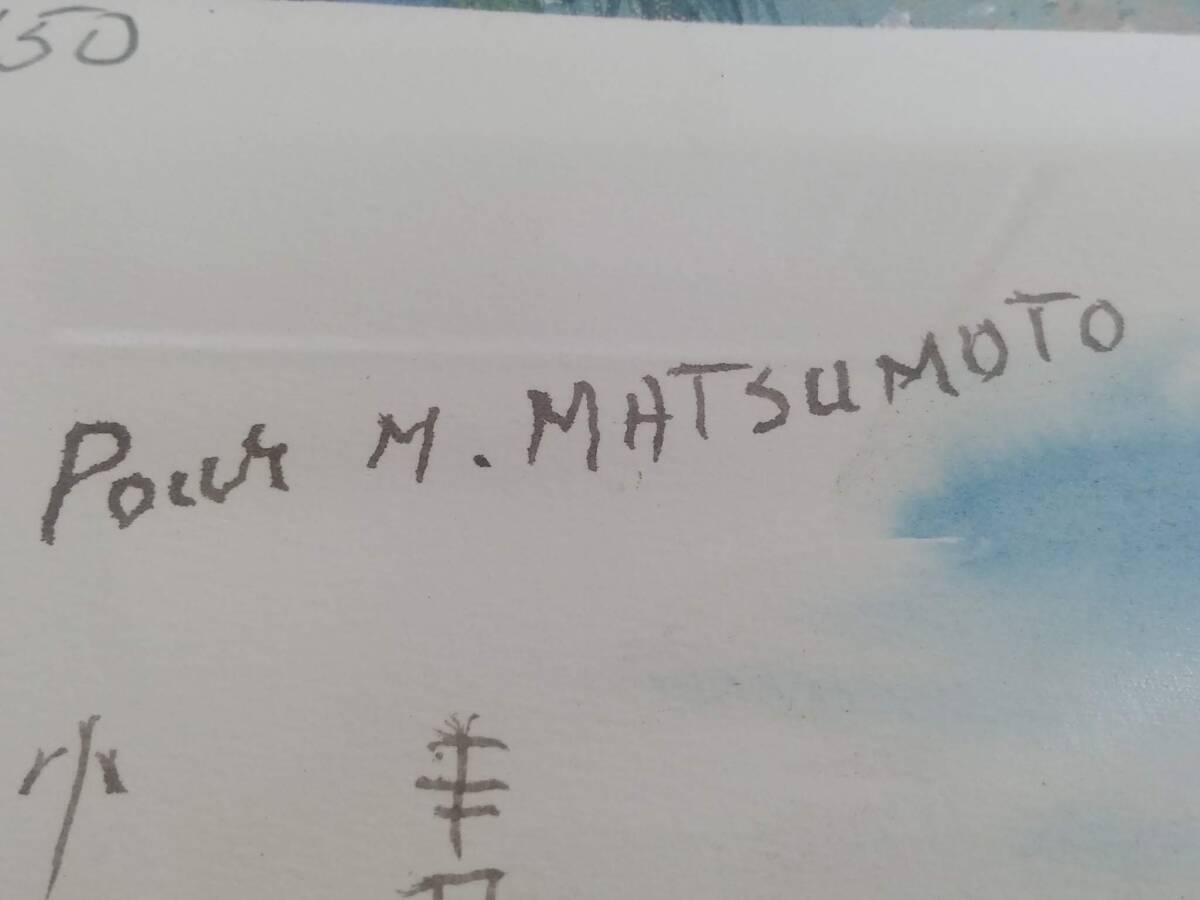 50
Pour M. MATSUMOTO
小